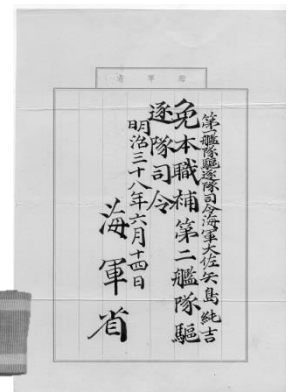 海軍省
第一艦隊駆逐隊司令海軍大佐矢島純吉
免本職補第二艦隊駆
逐隊司令
明治三十八年六月十四日
海軍省